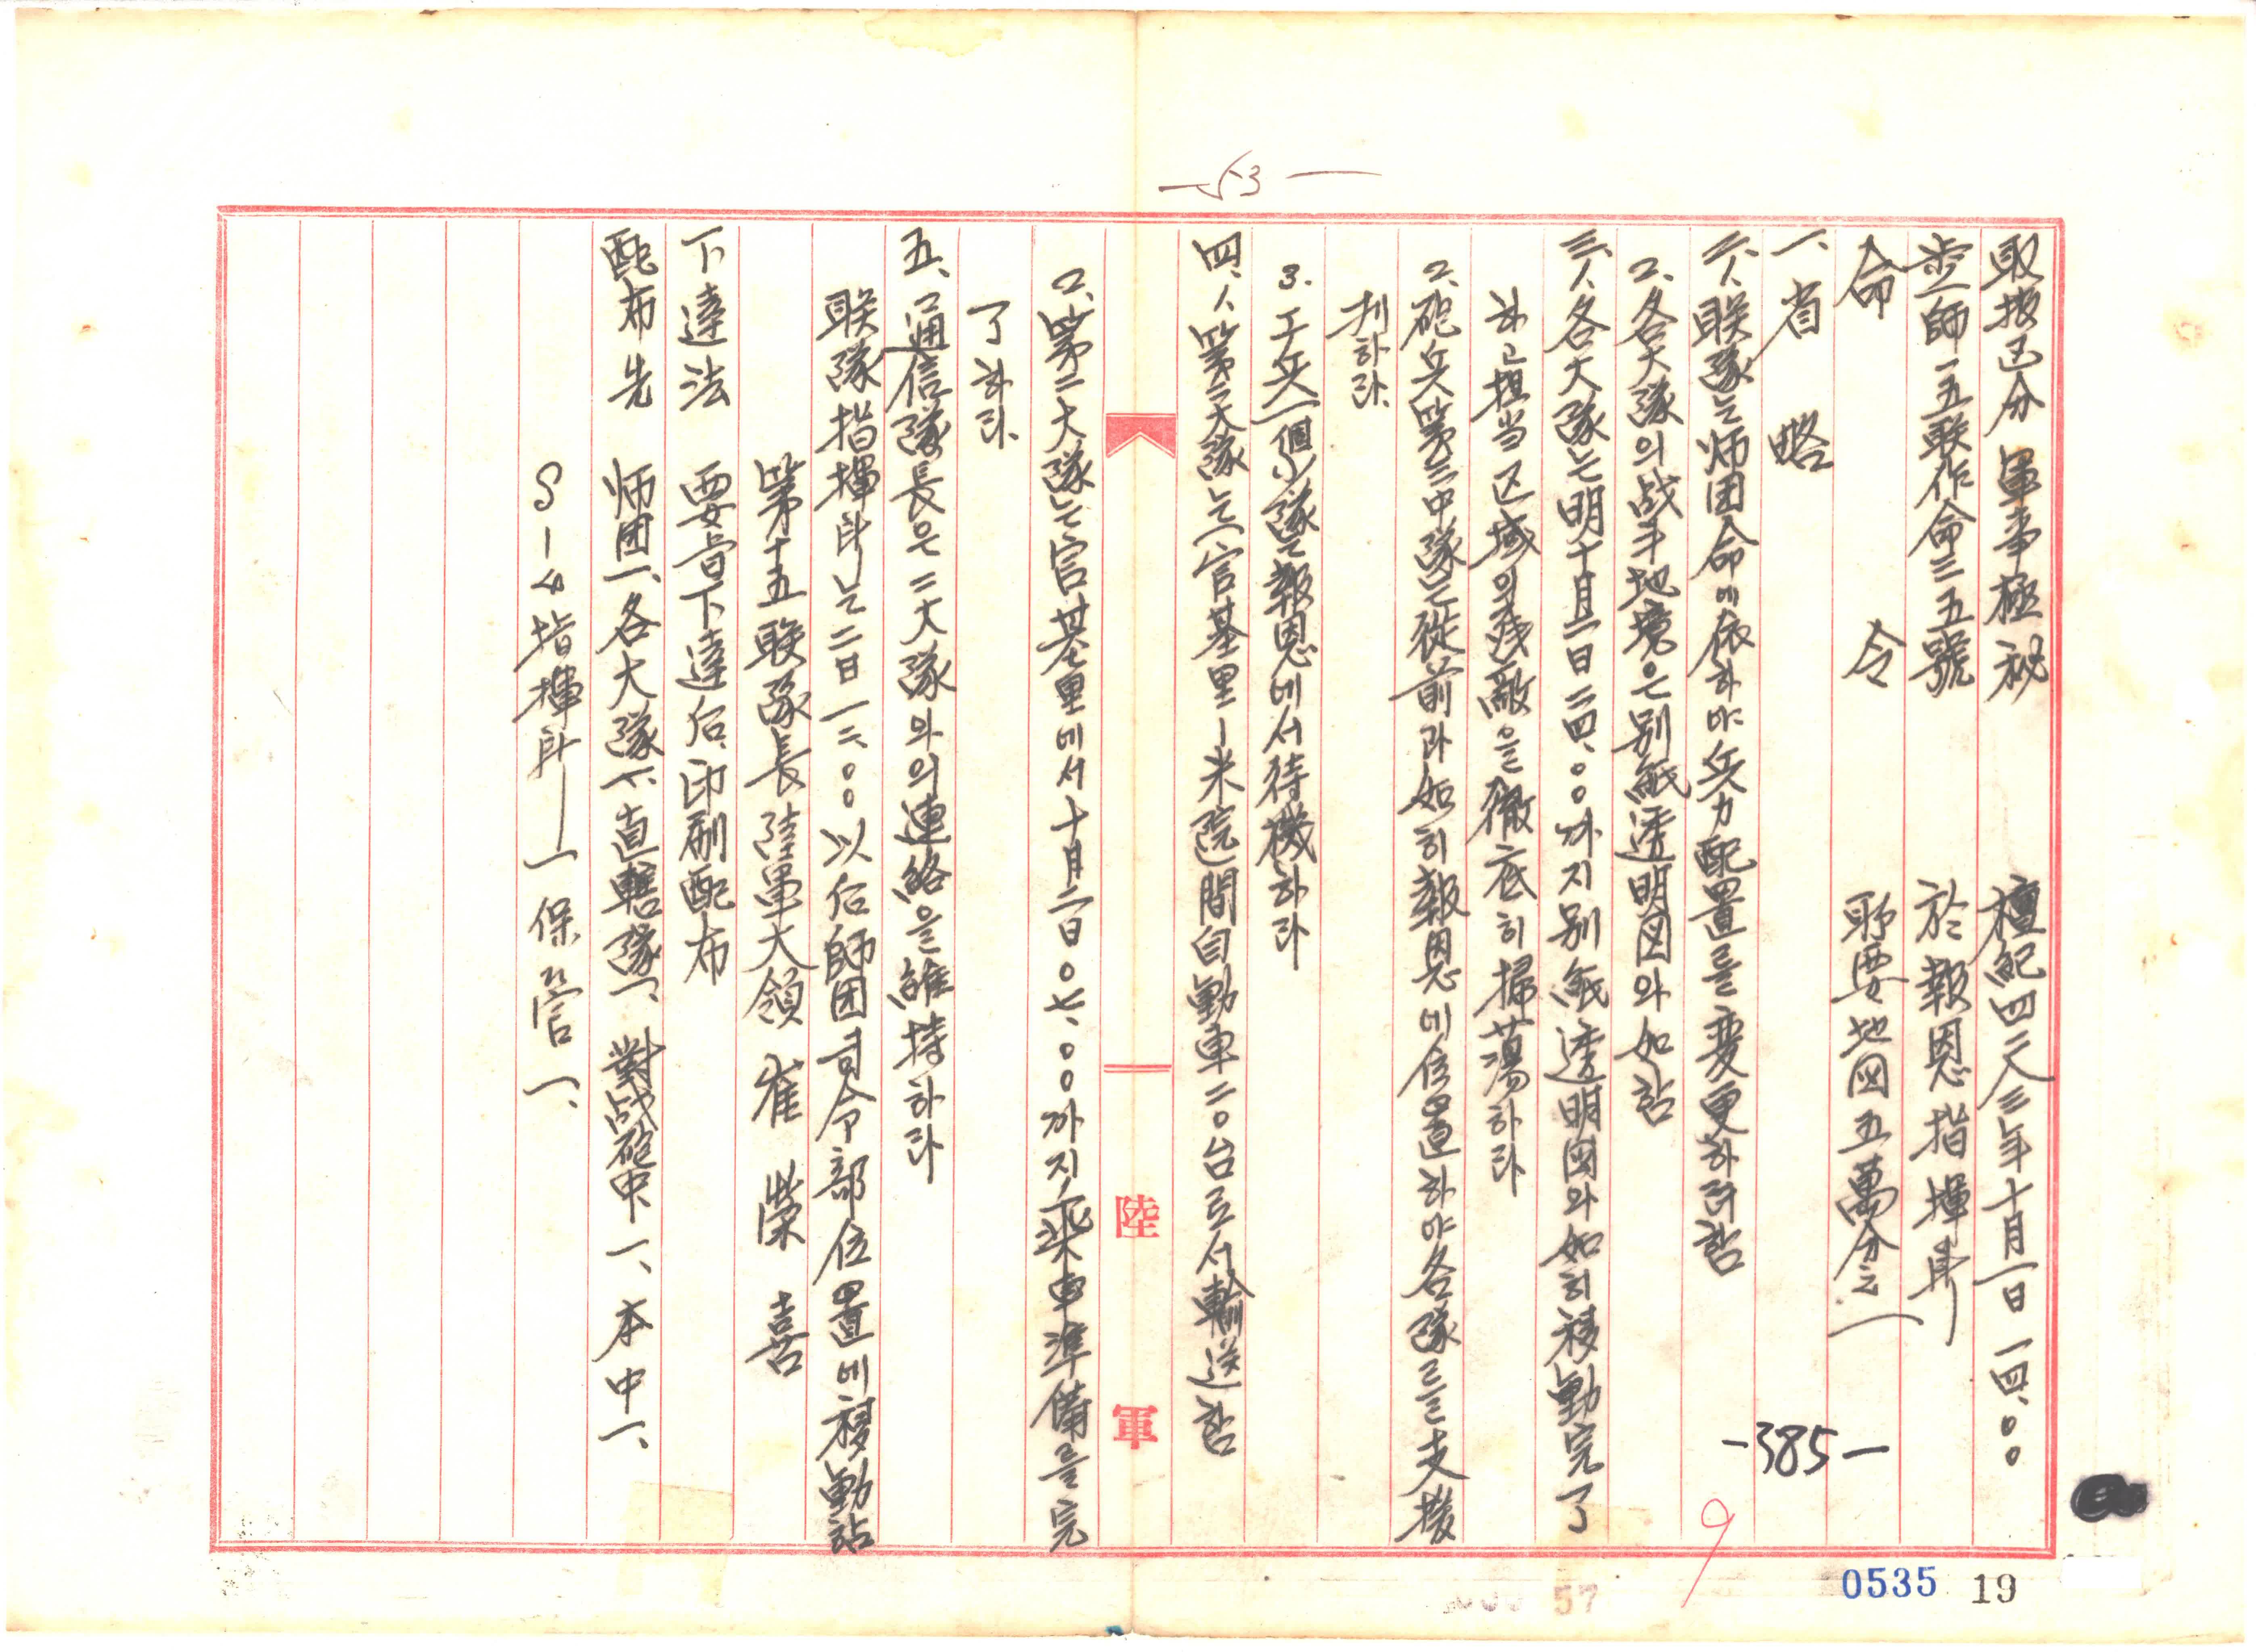 —53—
取扱区分 軍事極秘 檀紀四二八三年十月一日 一四.〇〇
歩一師一五聯作命三五號 於報恩指揮所
命 令 所要地図五萬分之一
一、省 略
二、1、聯隊는师団命에依하야兵力配置를変更하려함
2、各大隊의战斗地境은别紙透明図와如함
三、1、各大隊는明十月二日二四.〇〇까지别紙透明図와如히移動完了
하고担当区域의残敵을徹底히掃蕩하라
2、砲兵第三中隊는從前과如히報恩에位置하야各隊를支援
케하라.
3. 工兵一個小隊는報恩에서待機하라
四、1、第三大隊는官基里–米院間自動車二〇台로서輸送함
2、第二大隊는官基里에서十月二日〇七.〇〇까지乘車準備를完
了하라.
五、通信隊長은二大隊와의連絡을維持하라
聯隊指揮所는二日一二.〇〇以后師団司令部位置에移動함
第十五聯隊長陸軍大領 崔 榮 喜
下達法 要旨下達后、印刷配布
配布先 师団一、各大隊一、直轄隊一、對战砲中一、本中一、
S-4指揮所一保管一、
陸軍
-385-
9
57
0535 19